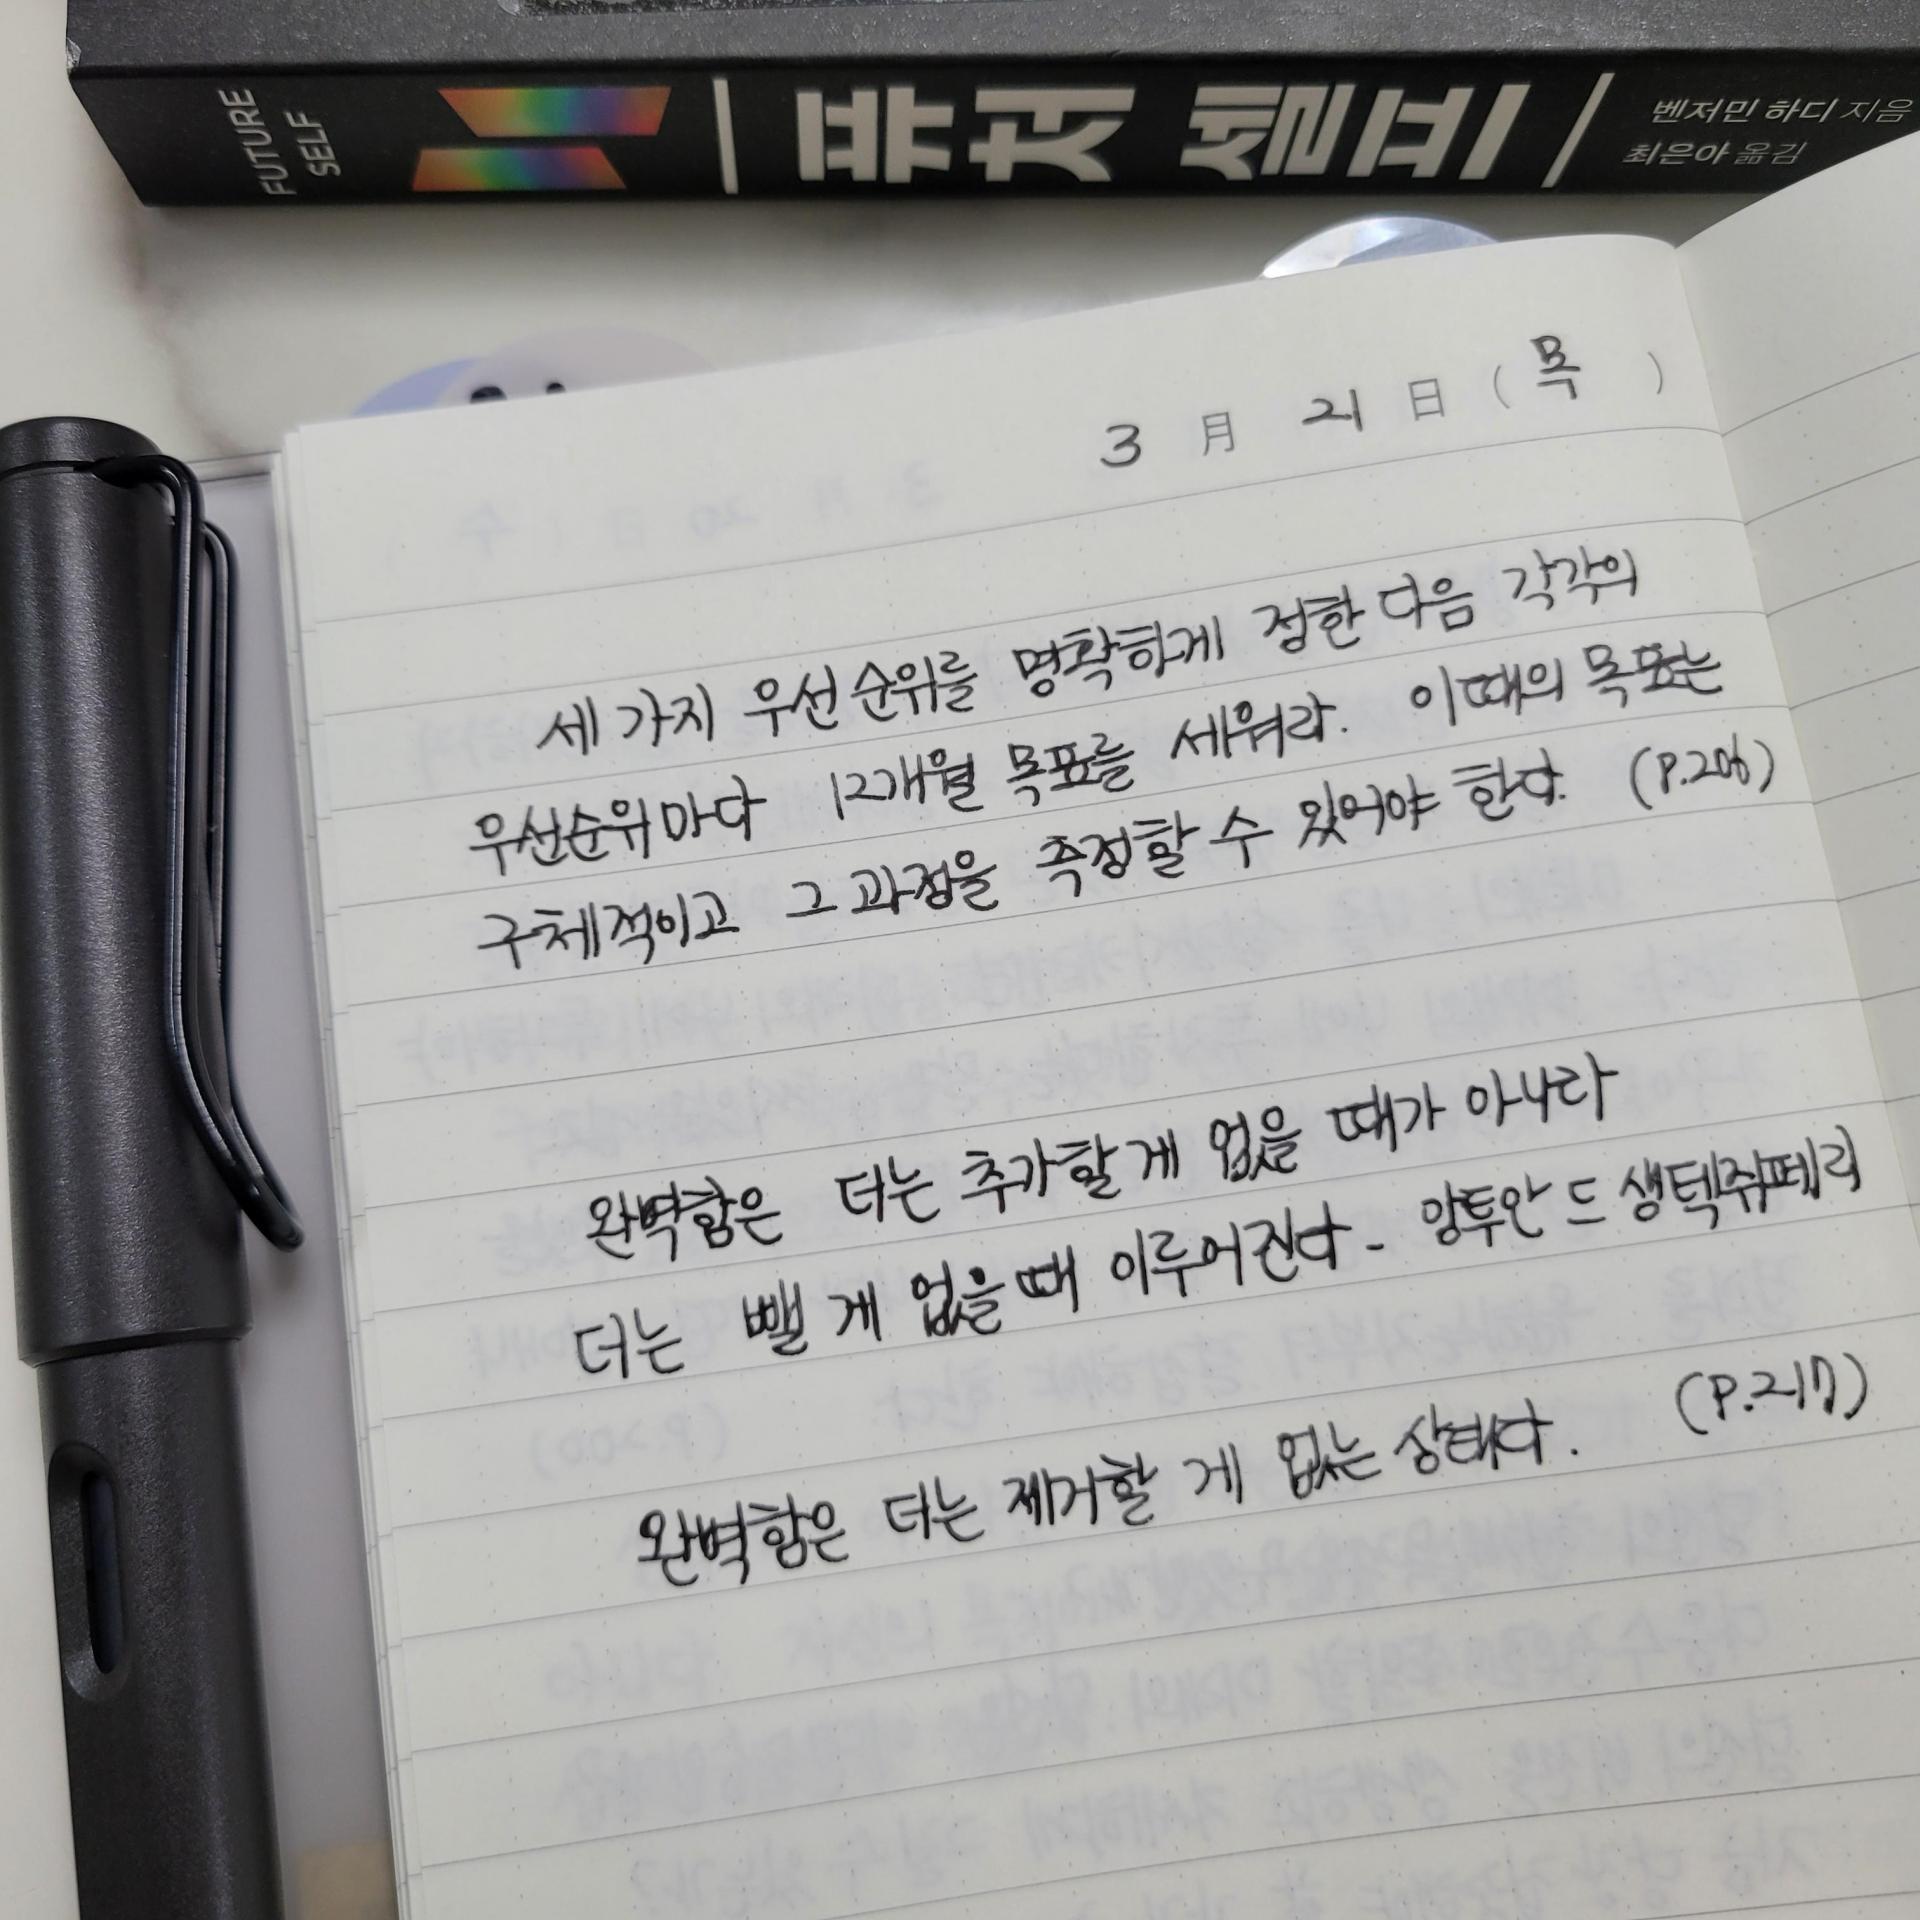 FUTURE
SELF
퓨처 셀프
벤저민 하디 지음
최은아 옮김
3 月 21 日 (목)
세 가지 우선순위를 명확하게 정한 다음 각각의
우선순위마다 12개월 목표를 세워라. 이때의 목표는
구체적이고 그 과정을 측정할 수 있어야 한다. (P.206)
완벽함은 더는 추가할 게 없을 때가 아니라
더는 뺄 게 없을 때 이루어진다 - 앙투안 드 생텍쥐페리
(P.217)
완벽함은 더는 제거할 게 없는 상태다.